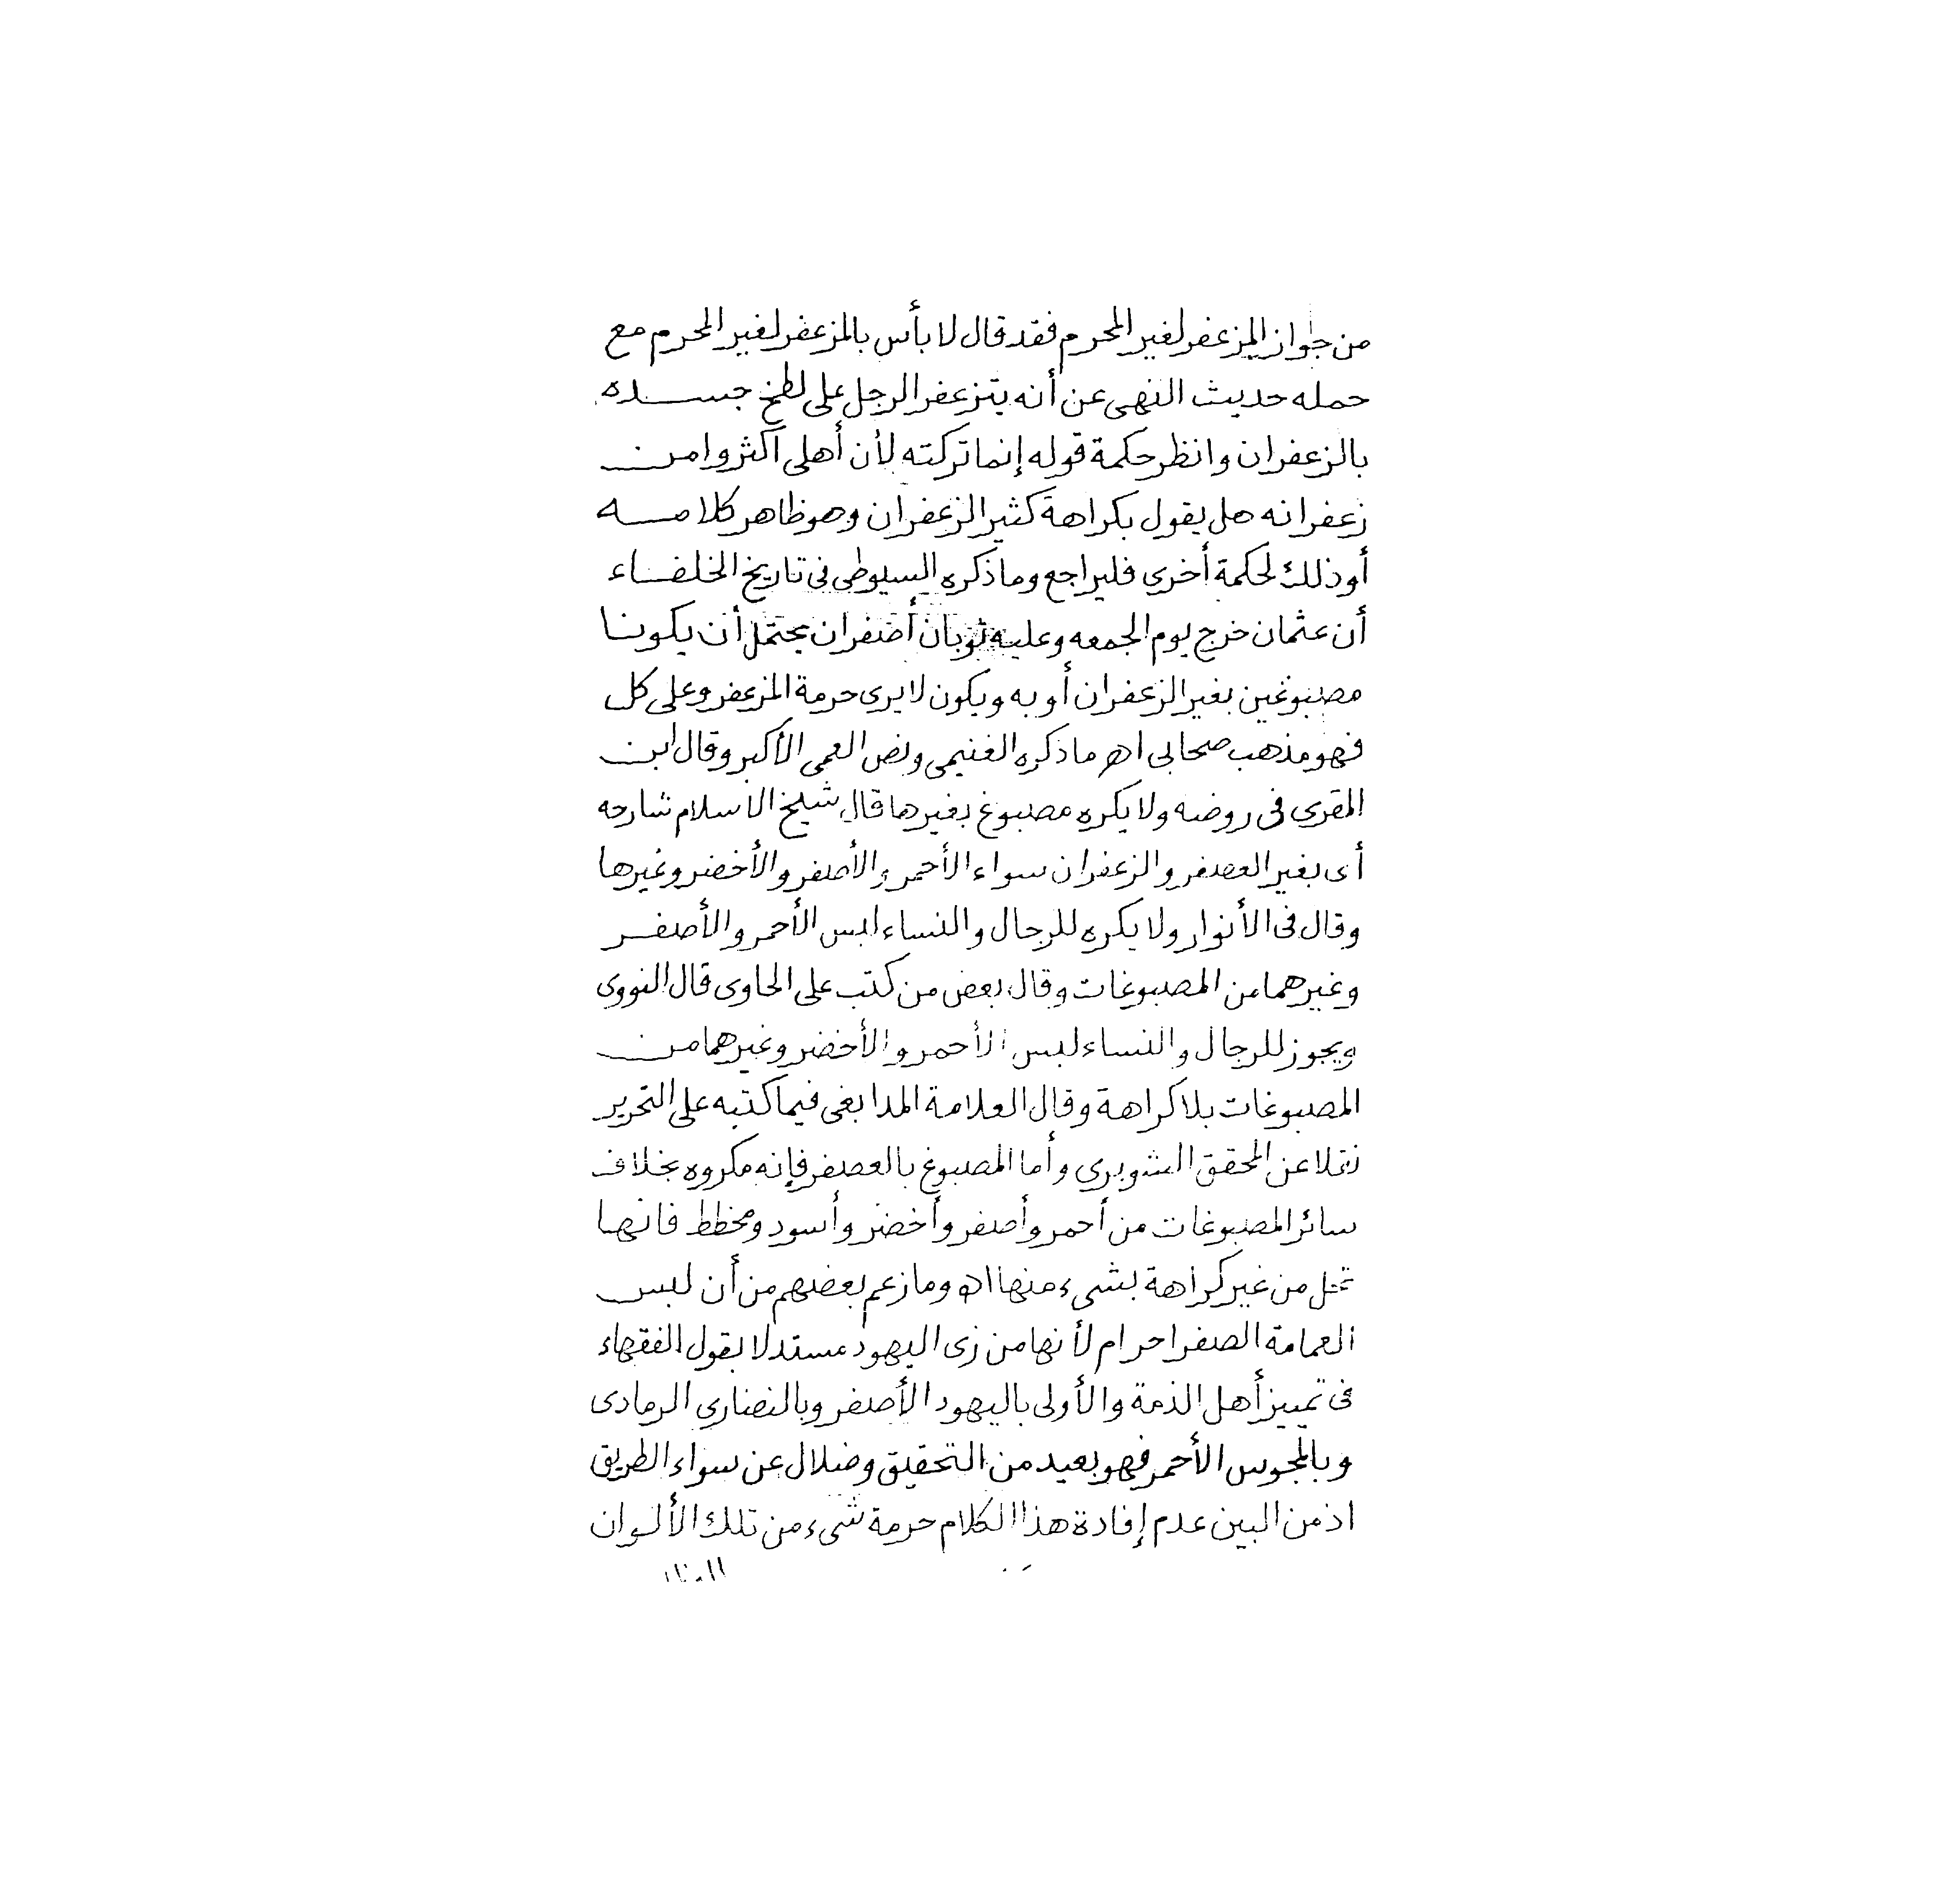 من جواز المزعفر لغير المحرم فقد قال لا بأس بالمزعفر لغير المحرم مع
حمله حديث النهى عن أنه يتزعفر الرجل على لطخ جسده
بالزعفران وانظر حكمة قوله إنما تركته لأن أهلى أكثروا من
زعفرانه هل يقول بكراهة كثير الزعفران وهو ظاهر كلامه
أو ذلك لحكمة أخرى فليراجع وما ذكره السيوطى فى تاريخ الخلفاء
أن عثمان خرج يوم الجمعه وعليه ثوبان أصفران يحتمل أن يكونا
مصبوغين بغير الزعفران أو به ويكون لا يرى حرمة المزعفر وعلى كل
فهو مذهب صحابى اه ما ذكره الغنيمى ونص العمى الأكبر وقال ابن
المقرى فى روضه ولا يكره مصبوغ بغيرها قال شيخ الاسلام شارحه
أى بغير العصفر والزعفران سواء الأحمر والأصفر والأخضر وغيرها
وقال فى الأنوار ولا يكره للرجال والنساء لبس الأحمر والأصفر
وغيرهما من المصبوغات وقال بعض من كتب على الحاوى قال النووى
ويجوز للرجال والنساء لبس الأحمر والأخضر وغيرهما من
المصبوغات بلا كراهة وقال العلامة المدابغى فيما كتبه على التحرير
نقلا عن المحقق الشوبري وأما المصبوغ بالعصفر فإنه مكروه بخلاف
سائر المصبوغات من أحمر وأصفر وأخضر وأسود ومخطط فانها
تحل من غير كراهة بشىء منها اه وما زعم بعضهم من أن لبس
العمامة الصفرا حرام لأنها من زى اليهود مستدلا بقول الفقهاء
فى تمييز أهل الذمة والأولى باليهود الأصفر وبالنصارى الرمادى
وبالمجوس الأحمر فهو بعيد من التحقيق وضلال عن سواء الطريق
اذ من البين عدم إفادة هذا الكلام حرمة شىء من تلك الألوان